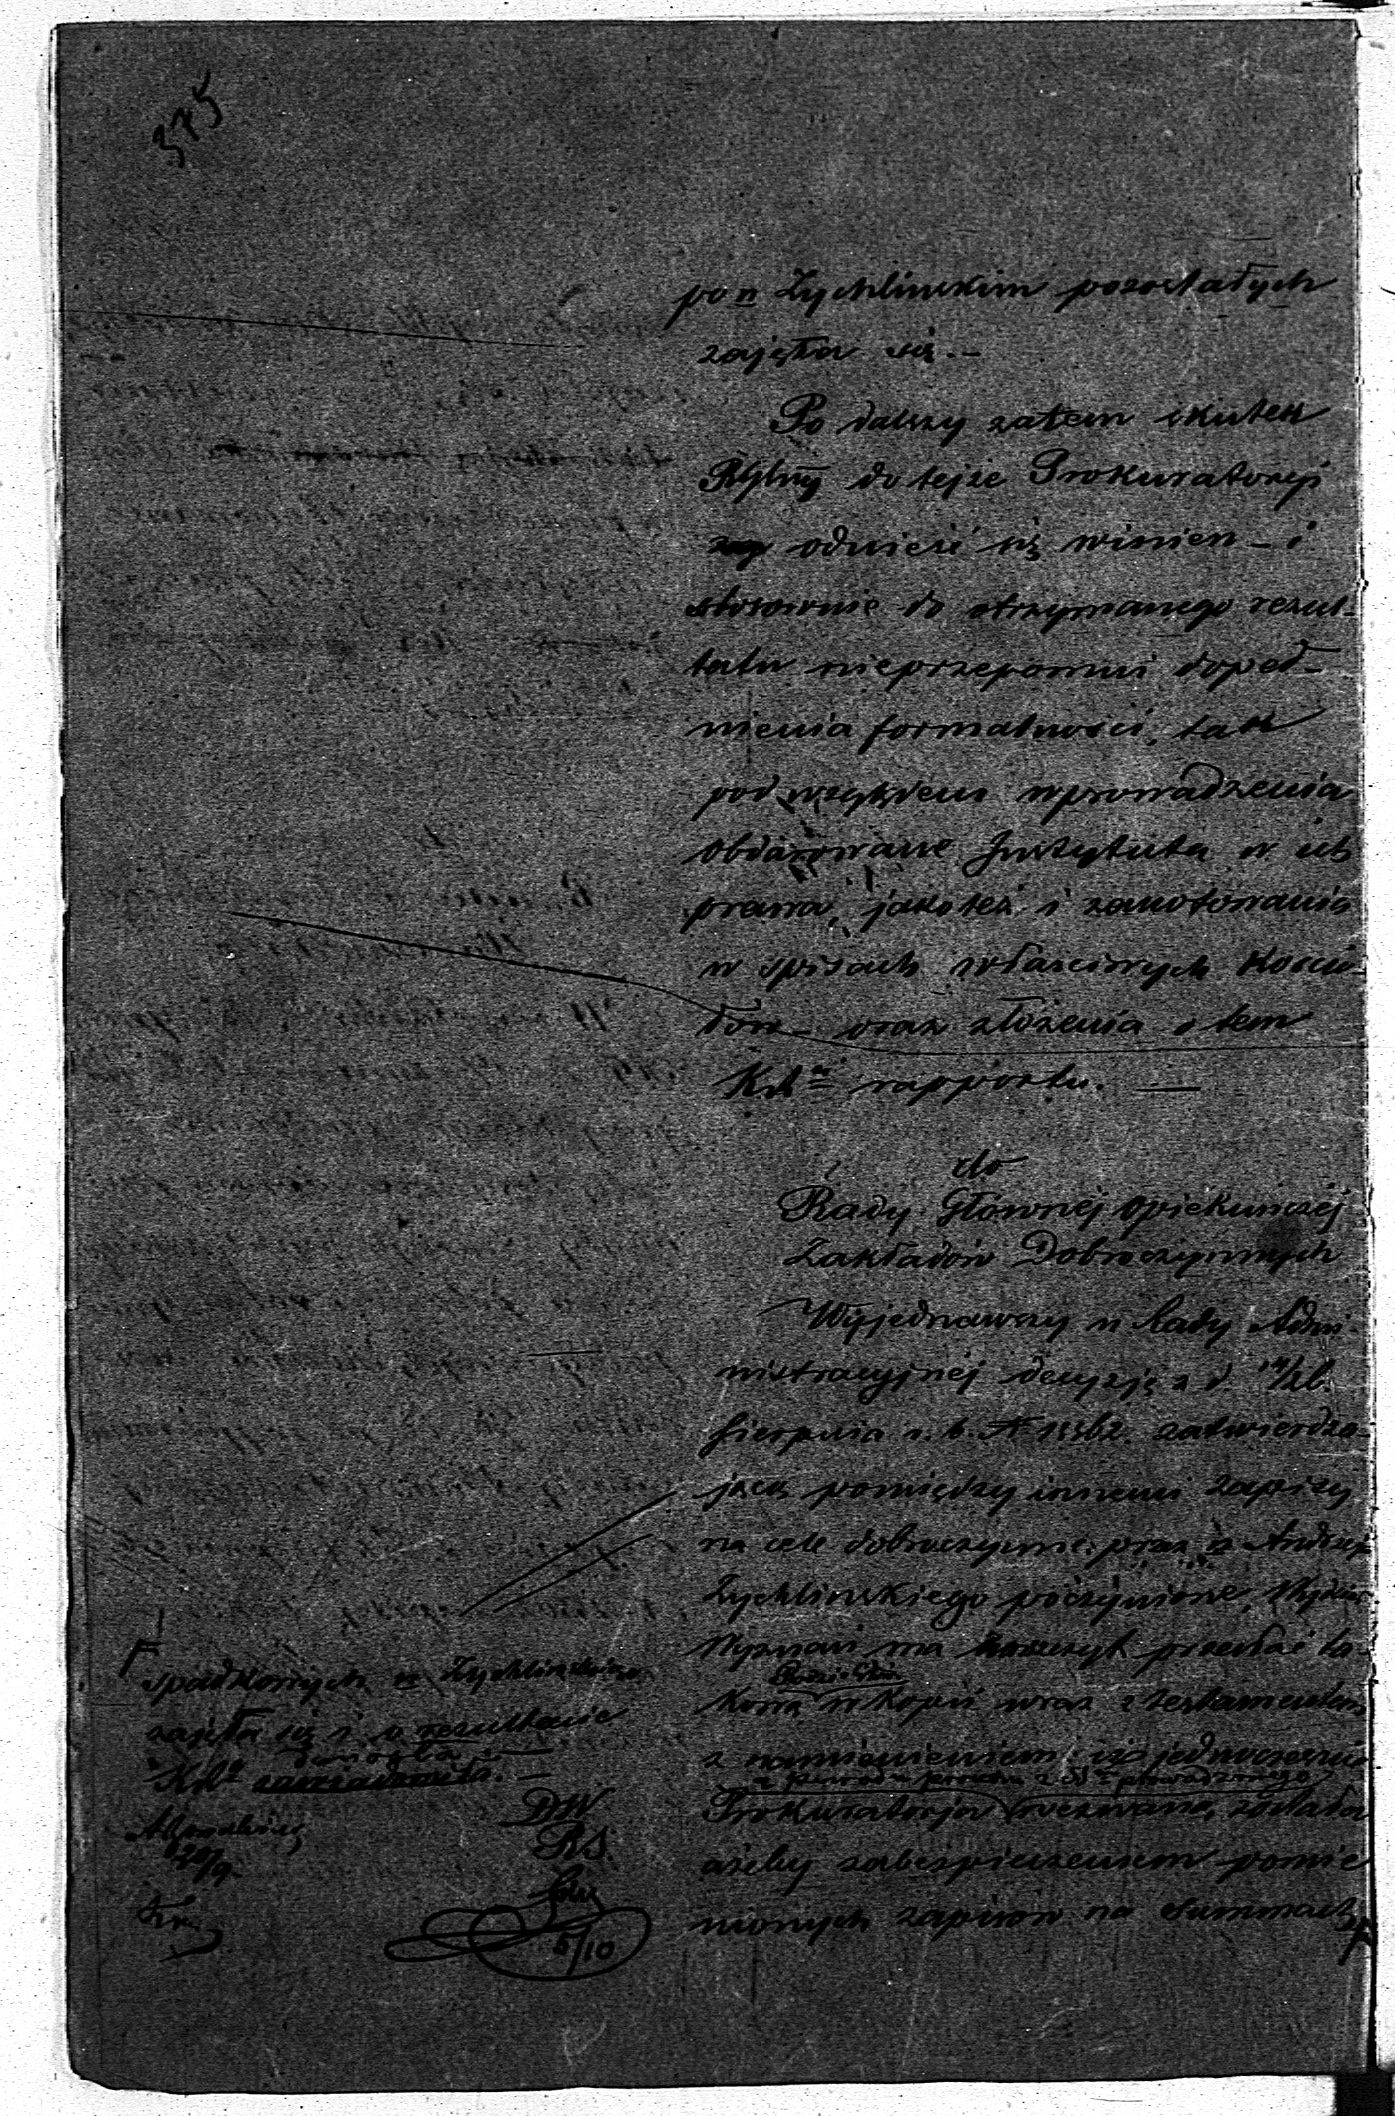 375
po n Zychlinskim pozostałych
zajęła się. –
Po dalszy zatem skutek
do tejże Prokuratoryi
odnieść się winien – i
stosownie do otrzymanego rezul-
tatu nieprzepomni dopeł-
nienia formalności, tak
pod względem wprowadzenia
obdarowane Instytuta w ich
prawa, jakoteż i zanotowania
w spisach właściwych Kościo-
łów – oraz złożenia o tem
rapportu. —
do
Rady Głównej Opiekuńczej
Zakładów Dobroczynnych
Wyjednawszy u Rady Admi-
nistracyjnej decyzję z d. 14/26
Sierpnia r. b. N zatwierdza-
jącą pomiędzy innemi zapisy
na cele dobroczynne przez n Andrzeja
Zychlinskiego poczynione,
Wyznań ma zaszczyt przesłać ta-
Radzie Głów
kową w kopii wraz z testamentem
z namienieniem iż jednocześnie
Prokuratorja wezwaną została
ażeby zabezpieczeniem pomie-
nionych zapisów na summach
F
F
spadkowych n Zychlinskiego
zajęła się i o rezultacie
doniosła
20/9
DW
RS
5/10